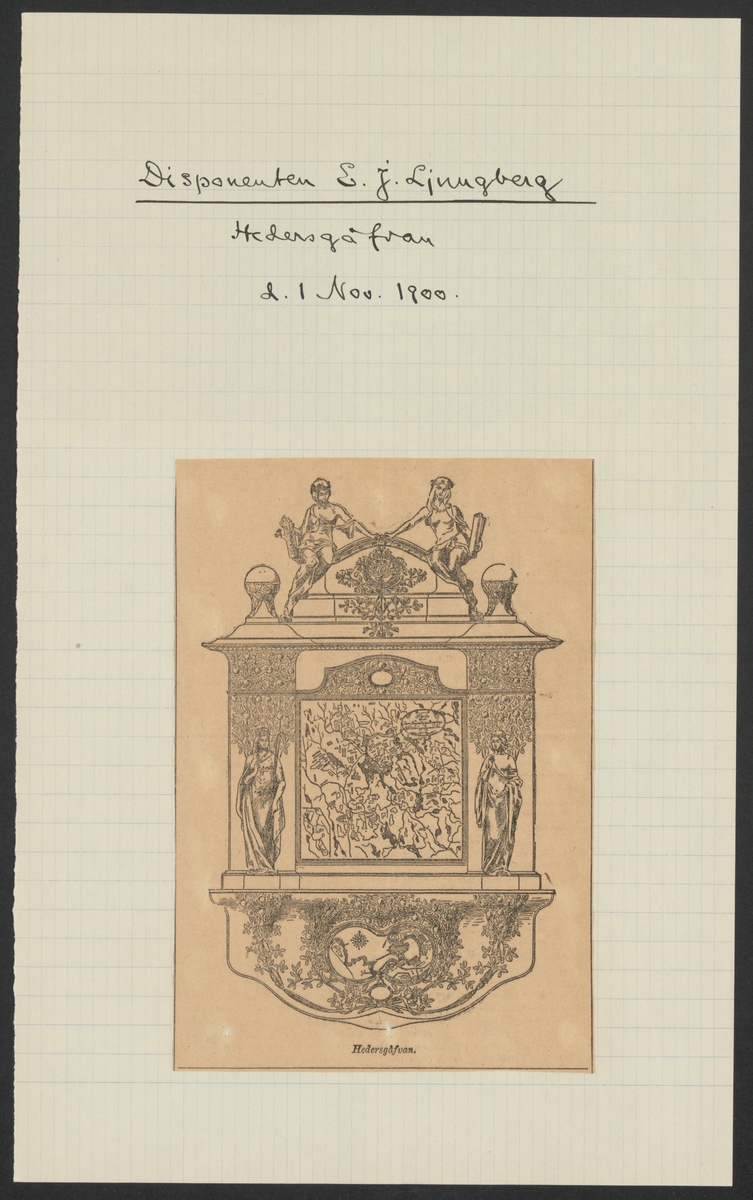 Disponenten E. J. Ljungberg
Hedersgåfvan
d. 1 Nov. 1900.
Hedersgåfvan.